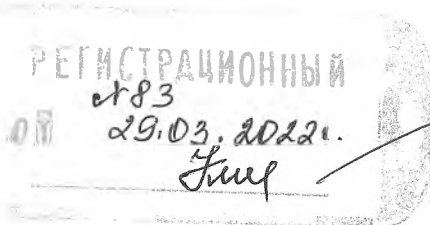 РЕГИСТРАЦИОННЫЙ
№83
29.03.2022г.